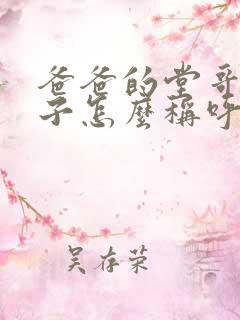 爸爸的堂哥
子怎麼稱呼
吴存荣